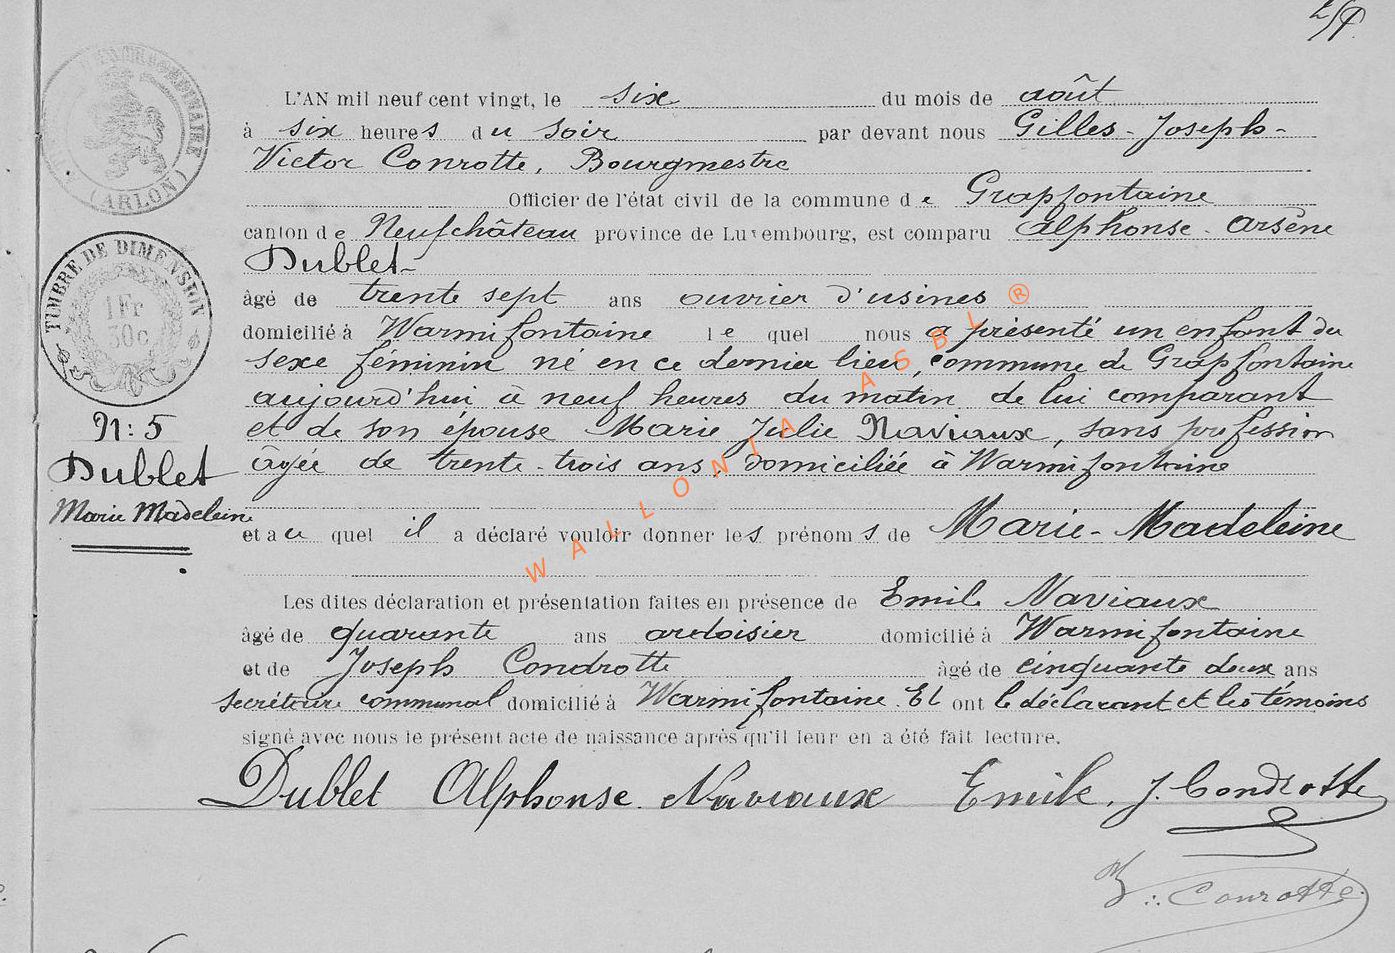 L'AN mil neuf cent vingt, le six du mois de août
à six heures du soir par devant nous Gilles-Joseph-
Victor Conrotte, Bourgmestre
Officier de l'état civil de la commune de Grapfontaine
canton de Neufchâteau province de Luxembourg, est comparu Alphonse-Arsène
Dublet
âgé de trente sept ans ouvrier d'usines
domicilié à Warmifontaine lequel nous a présenté un enfant du
sexe féminin né en ce dernier lieu, commune de Grapfontaine
aujourd'hui à neuf heures du matin de lui comparant
et de son épouse Marie Julie Naviaux, sans profession
âgée de trente-trois ans, domiciliée à Warmifontaine
et auquel il a déclaré vouloir donner les prénoms de Marie-Madeleine
Les dites déclaration et présentation faites en présence de Emile Naviaux
âgé de quarante ans ardoisier domicilié à Warmifontaine
et de Joseph Condrotte âgé de cinquante deux ans
secrétaire communal domicilié à Warmifontaine. Et ont le déclarant et les témoins
signé avec nous le présent acte de naissance après qu'il leur en a été fait lecture.
Dublet Alphonse. Naviaux Emile. J. Condrotte
V: Conrotte
(ARLON)
TIMBRE DE DIMENSION
1 Fr
30c
N: 5
Dublet
Marie Madeleine
WALLONIA ASBL ®